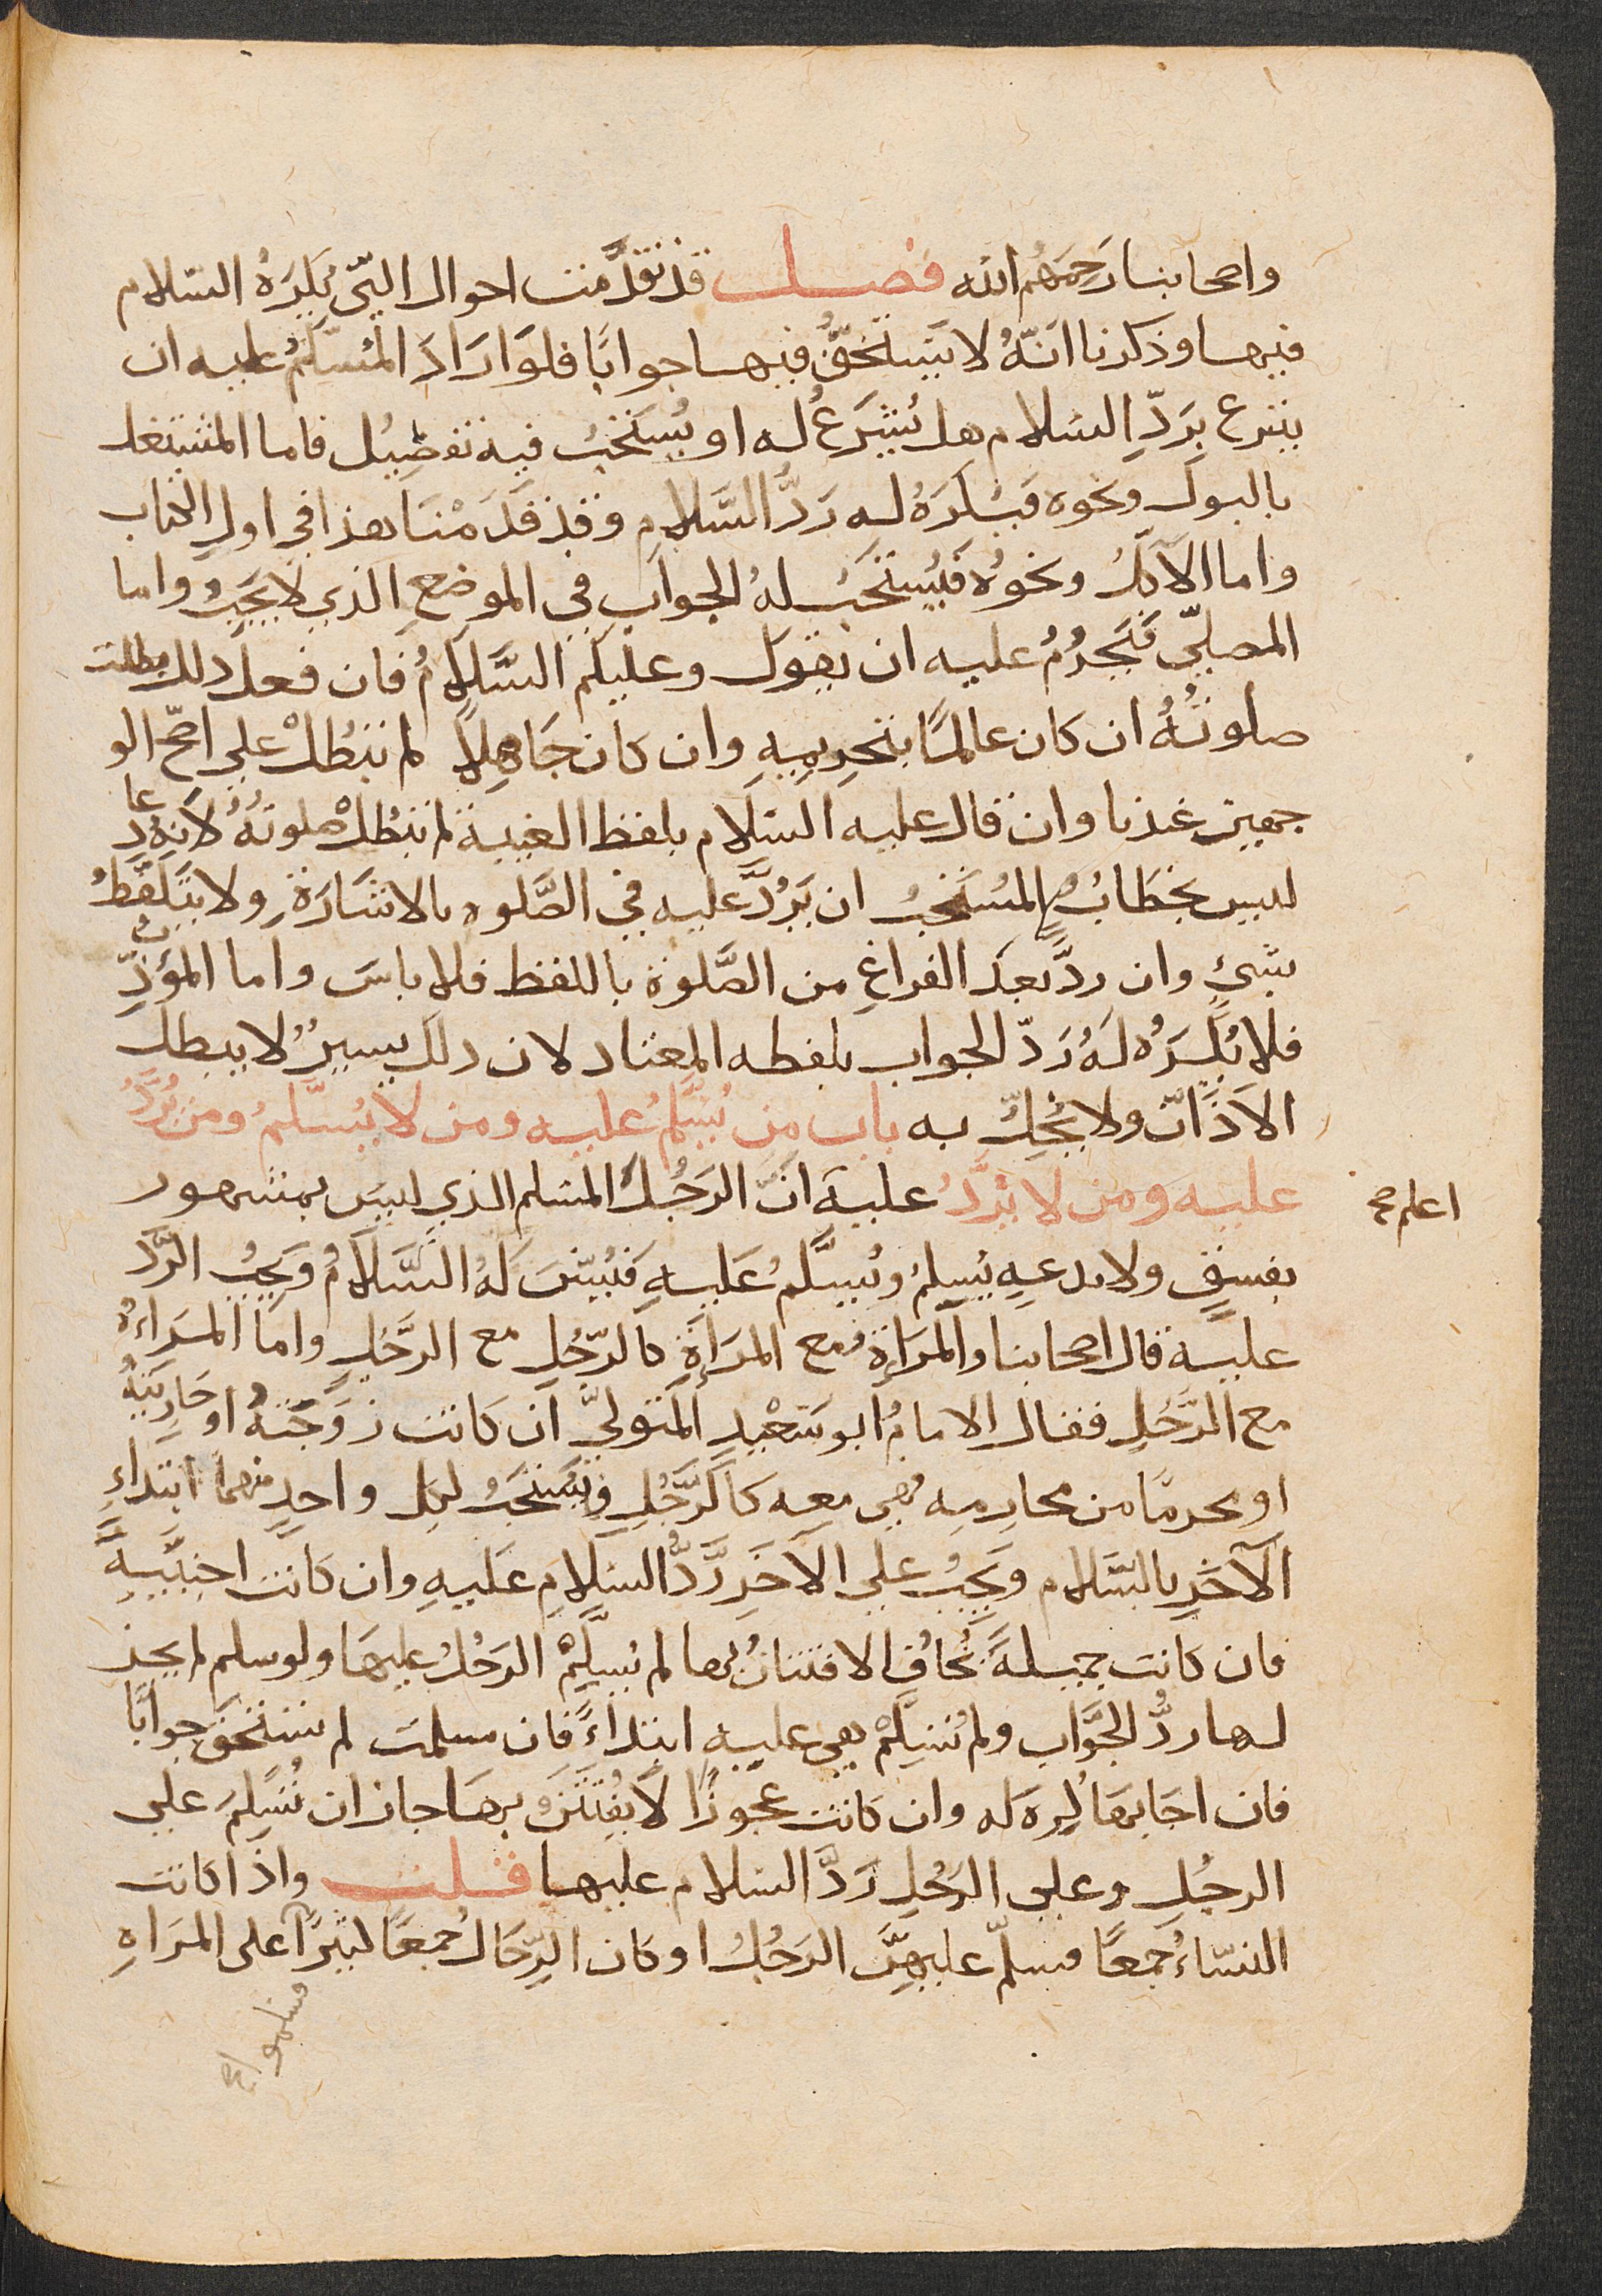 واصحابنا رَحِمَهُم الله فصل قد تقدَّمت احوال التي يُكرَهُ السّلام
فيها وذكرنا انّهُ لا يَستحَقُّ فيها جوابًا فلو ارَادَ المُسَلَّم عليه ان
يتبرع بِرَدِّ السّلام هل يُشرَعُ له او يُستَحَبُّ فيه تفصِيل فاما المشتغل
بالبول ونحوه فيُكرَهُ له رَدُّ السَّلام وقد قدَّمْنَا هذا في اول الكتاب
واما الآكلُ ونحوُه فيُستحَبُّ لهُ الجواب في الموضع الذي لا يجَبُ واما
المصلّي فيَحرُمُ عليه ان يقول وعليكم السَّلامُ فان فعل ذلك بطلت
صلوتُهُ ان كان عالمًا بتحرِيمِهِ وان كان جَاهِلاً لم تبطُلْ علي اصحّ الو
جهين عندنا وان قال عليه السّلام بلفظ الغيبة لم تبطُلْ صلوتُهُ لانّهُ دعا
ليس بخطَابٍ والمُستَحَبُّ ان يَرُدَّ عليه في الصَّلوه بالاشارَةِ ولا يتَلفَّظُ
بشيءٍ وان ردَّ بعدَ الفراغِ من الصَّلوة باللفظ فلا باسَ واما المؤذِّن
فلا يُكرَهُ لَهُ رَدّ الجواب بلفظه المعتاد لان ذلك يسيرٌ لا يبطل
الاَذَانَ ولا يُخِلُّ به باب من يُسَلَّمُ عليه ومن لا يُسَلَّمُ ومن يُرَدُّ
عليه ومن لا يُرَدُّ عليه انَّ الرَجُلَ المسلم الذي ليسَ بمشهور
اعلم صح
بفسقٍ ولا بدعهٍ يُسلِّمُ ويُسلَّمُ عَليهِ فيُسَنّ لَهُ السَّلامُ ويَجِبُ الرَّدّ
عليه قال اصحابنا والمرَاة مع المرَاةِ كالرّجُلِ مع الرَّجُلِ واما المرَاءهُ
مع الرَّجُلِ فقال الامامُ ابو سَعْيدٍ المتوليّ ان كانت زَوجَتهُ او جَاريَتهُ
او محرمًا من محارمِه فهي معه كالرَّجُلِ فيُستحَبُّ لكل واحدٍ منهما ابتداءِ
الآخرِ بالسَّلام ويَجِبُ علي الآخَرِ رَدُّ السلامِ عَليهِ وان كانت اجنبيَّةً
فان كانت جميلةً يُخافُ الافتتانُ بها لم يُسلِّمْ الرَجُلُ عليهَا ولو سلم لم يجز
لها ردُّ الجوَاب ولم تُسَلِّمْ هي عليه ابتداءً فان سلمت لم تستحق جوابًا
فان اجَابهَا كُرِه لَه وان كانت عجوزًا لا يُفتتَنُ بهَا جاز ان تُسَلِّمَ علي
الرجُلِ وعلي الرَجُلِ رَدَّ السلام عليها قلت واذا كانت
النسّاءُ جمعًا فسلّم عليهِنَّ الرَجُلُ او كان الرِّجَالُ جمعًا كثيرًا على المرَاهِ
فسلموا صح